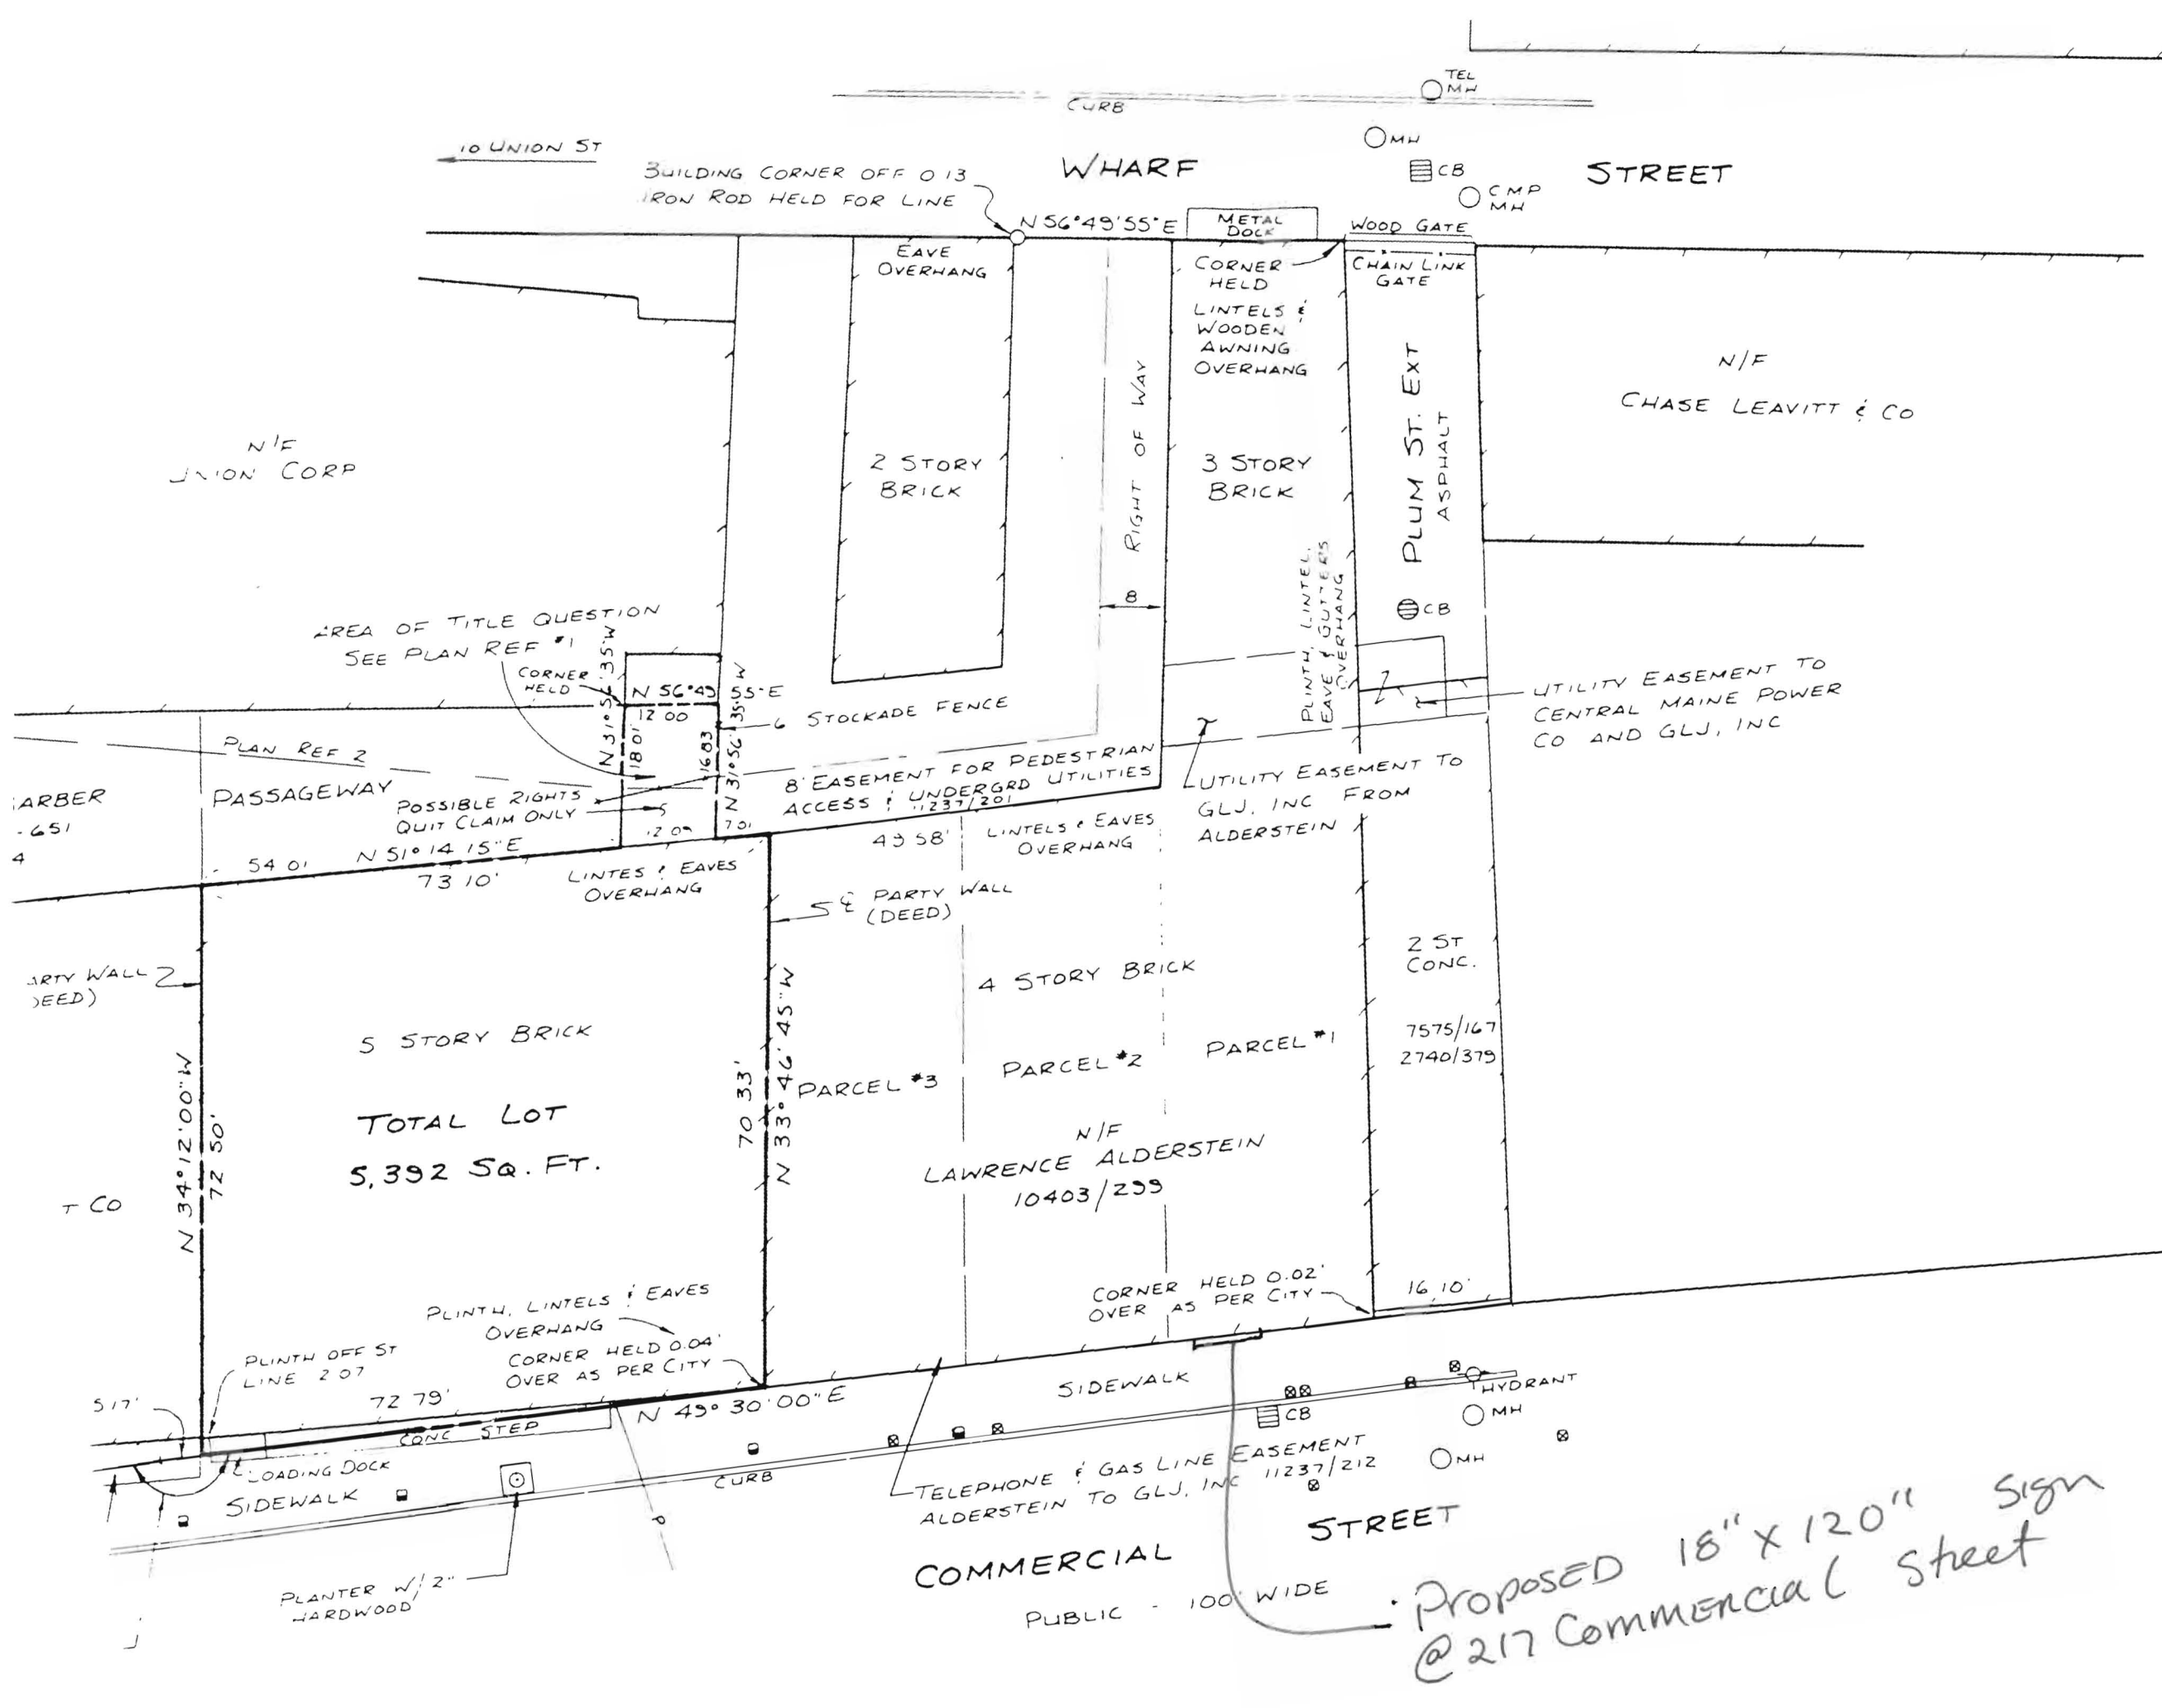 TEL
MH
CURB
MH
10 UNION ST
WHARF
STREET
CB
CMP
MH
BUILDING CORNER OFF 0 13
IRON ROD HELD FOR LINE
N 56°49'55"E
METAL
DOCK
WOOD GATE
EAVE
OVERHANG
CORNER
HELD
CHAIN LINK
GATE
LINTELS &
WOODEN
AWNING
OVERHANG
N/F
CHASE LEAVITT & CO
N/F
UNION CORP
2 STORY
BRICK
RIGHT OF WAY
3 STORY
BRICK
PLUM ST. EXT
ASPHALT
8
CB
PLINTH, LINTEL,
EAVE & GUTTERS
OVERHANG
AREA OF TITLE QUESTION
SEE PLAN REF #1
CORNER
HELD
N 56°49 55"E
12 00
N 31°56'35"W
18 01'
16 83
N 31°56'35"W
6 STOCKADE FENCE
UTILITY EASEMENT TO
CENTRAL MAINE POWER
CO AND GLJ, INC
PLAN REF 2
PASSAGEWAY
ARBER
-651
4
POSSIBLE RIGHTS
QUIT CLAIM ONLY
8' EASEMENT FOR PEDESTRIAN
ACCESS & UNDERGRD UTILITIES
11237/201
UTILITY EASEMENT TO
GLJ, INC FROM
ALDERSTEIN
12 09
7 01
49 58'
LINTELS & EAVES
OVERHANG
54 01
N 51° 14 15"E
73 10'
LINTES & EAVES
OVERHANG
℄ PARTY WALL
(DEED)
ARTY WALL
DEED)
4 STORY BRICK
2 ST
CONC.
5 STORY BRICK
7575/167
2740/379
PARCEL #3
PARCEL #2
PARCEL #1
N 34°12'00"W
72 50'
70 33'
N 33°46'45"W
TOTAL LOT
5,392 SQ. FT.
N/F
LAWRENCE ALDERSTEIN
10403/299
T CO
PLINTH, LINTELS & EAVES
OVERHANG
CORNER HELD 0.04'
OVER AS PER CITY
CORNER HELD 0.02'
OVER AS PER CITY
16.10'
PLINTH OFF ST
LINE 2 07
5 17'
72 79'
CONC STEP
N 49° 30'00"E
SIDEWALK
HYDRANT
CB
MH
MH
LOADING DOCK
SIDEWALK
CURB
TELEPHONE & GAS LINE EASEMENT
ALDERSTEIN TO GLJ, INC 11237/212
P
PLANTER W/ 2"
HARDWOOD
COMMERCIAL
STREET
PUBLIC - 100' WIDE
PROPOSED 18" X 120" Sign
@ 217 Commercial Street